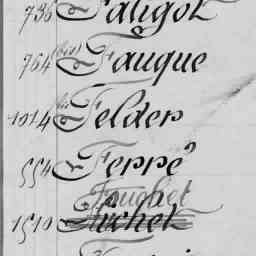 736 Faligot
764 (bis) Fauque
1014 bis Felder
554 Ferré
Fouchet
1510